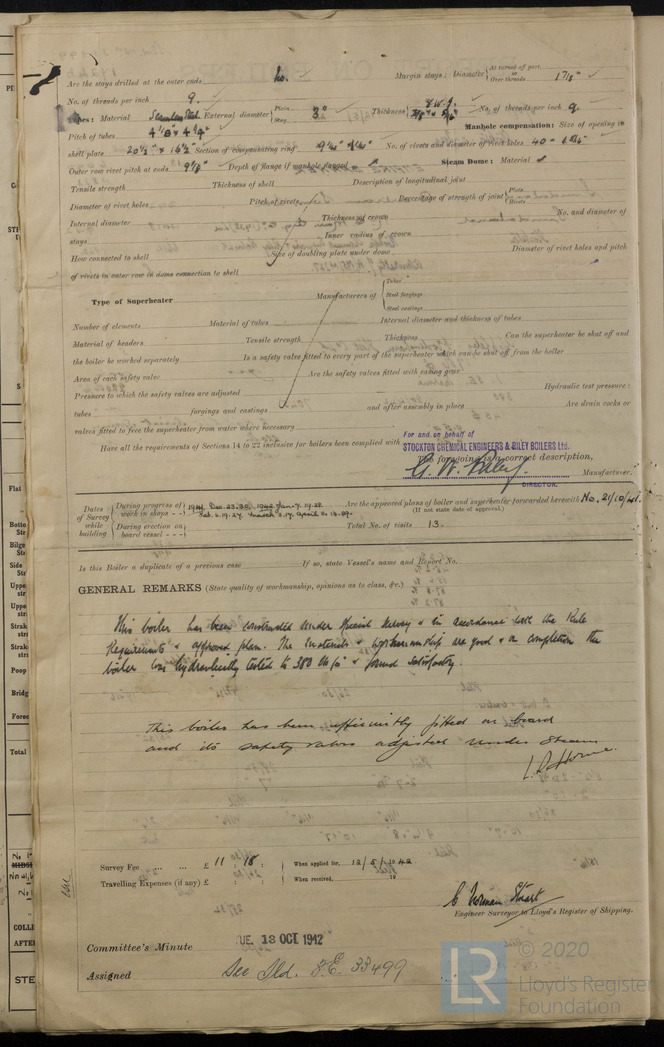 Are the stays drilled at the outer ends No. Margin stays: Diameter { At turned off part, or Over threads 1 7/8"
No. of threads per inch 9.
Tubes: Material Seamless Steel External diameter { Plain Stay 3" Thickness { 8 W.G. No. of threads per inch 9.
Pitch of tubes Manhole compensation: Size of opening in
shell plate 20½" × 16½" Section of compensating ring No. of rivets and diameter of rivet holes 40
Outer row rivet pitch at ends Depth of flange if manhole flanged Steam Dome: Material
Tensile strength Thickness of shell Description of longitudinal joint
Diameter of rivet holes Pitch of rivets Percentage of strength of joint { Plate Rivets
Internal diameter Thickness of crown No. and diameter of
stays Inner radius of crown
How connected to shell Size of doubling plate under dome Diameter of rivet holes and pitch
of rivets in outer row in dome connection to shell
Type of Superheater Manufacturers of { Tubes Steel forgings Steel castings
Number of elements Material of tubes Internal diameter and thickness of tubes
Material of headers Tensile strength Thickness Can the superheater be shut off and
the boiler be worked separately Is a safety valve fitted to every part of the superheater which can be shut off from the boiler
Area of each safety valve Are the safety valves fitted with easing gear
Pressure to which the safety valves are adjusted Hydraulic test pressure:
tubes forgings and castings and after assembly in place Are drain cocks or
valves fitted to free the superheater from water where necessary
Have all the requirements of Sections 14 to 22 inclusive for boilers been complied with
For and on behalf of
STOCKTON CHEMICAL ENGINEERS & RILEY BOILERS Ltd.
The foregoing is a correct description,
G. W. Riley Manufacturer.
DIRECTOR.
Dates of Survey while building { During progress of work in shops - - 1941 Dec. 23. 30. 1942 Jan. 7. 19. 28. Feb. 2. 19. 27. March 3. 17. April Are the approved plans of boiler and superheater forwarded herewith No. 21/10/41.
(If not state date of approval.)
During erection on board vessel - - - Total No. of visits 13.
Is this Boiler a duplicate of a previous case If so, state Vessel's name and Report No.
GENERAL REMARKS (State quality of workmanship, opinions as to class, &c.)
This boiler has been constructed under Special Survey & in accordance with the Rule
Requirements & approved plan. The materials & workmanship are good & on completion the
boiler was hydraulically tested to 383 lb/□" & found satisfactory.
This boiler has been efficiently fitted on board
and its safety valves adjusted under steam
Survey Fee ... ... £ 11 : 18 : When applied for, 12/5/1942
Travelling Expenses (if any) £ : : When received, 19
C Norman Stuart
Engineer Surveyor to Lloyd's Register of Shipping.
Committee's Minute TUE. 13 OCT 1942
Assigned See Sld. F.E. 33499
© 2020
LR
Lloyd's Register
Foundation